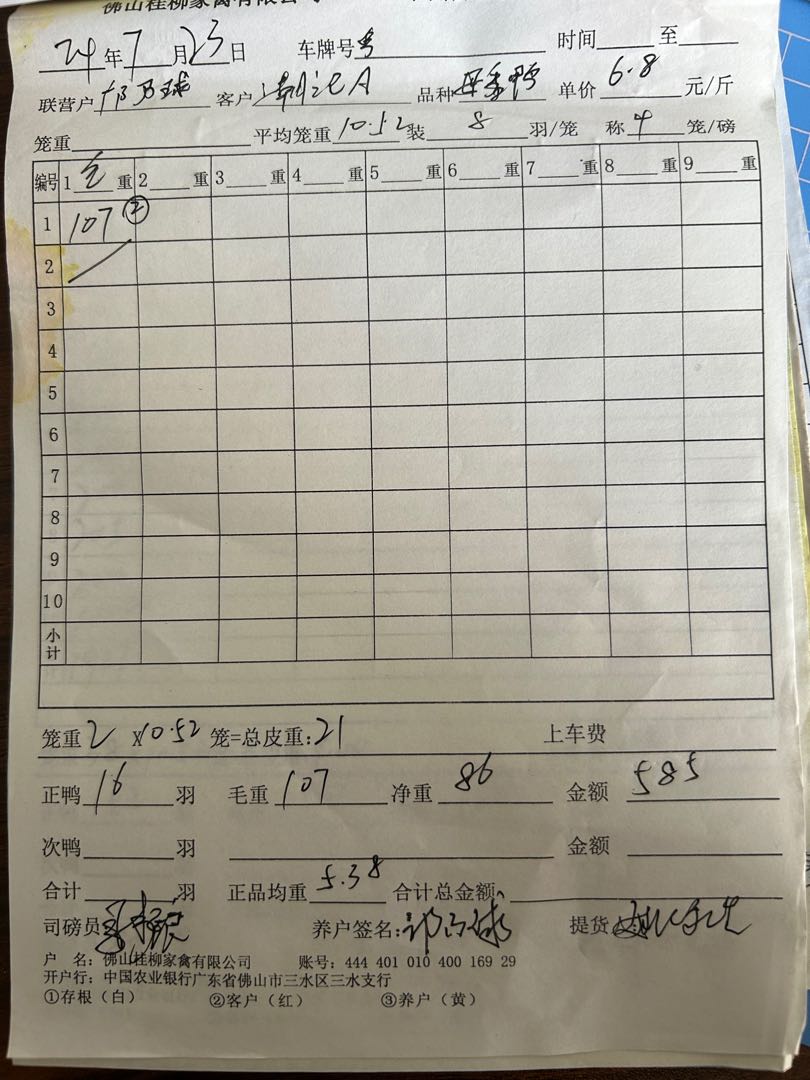 佛山桂柳家禽有限公司
24年7月23日 车牌号 时间 至
联营户 客户 A 品种 单价6.8元/斤
笼重 平均笼重10.52装8羽/笼 称4笼/磅
编号 1毛重 2重 3重 4重 5重 6重 7重 8重 9重
1 107 ②
2
3
4
5
6
7
8
9
10
小计
笼重2×10.52笼=总皮重:21 上车费
正鸭16羽 毛重107 净重86 金额585
次鸭羽 金额
合计羽 正品均重5.38 合计总金额
司磅员 养户签名: 提货
户 名:佛山桂柳家禽有限公司 账号:444 401 010 400 169 29
开户行:中国农业银行广东省佛山市三水区三水支行
①存根(白) ②客户(红) ③养户(黄)